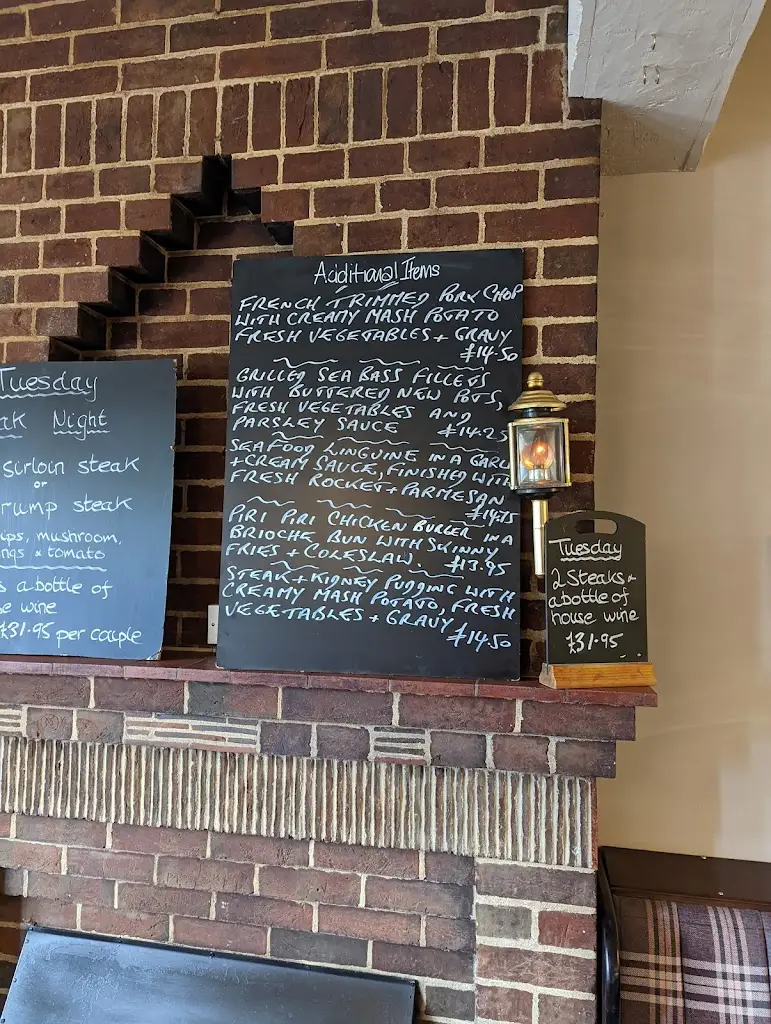 Tuesday
Night
sirloin steak
or
rump steak
mushroom,
& tomato
a bottle of
wine
£31.95 per couple
Additional Items
FRENCH TRIMMED PORK CHOP
WITH CREAMY MASH POTATO
FRESH VEGETABLES + GRAVY
£14.50
GRILLED SEA BASS FILLETS
WITH BUTTERED NEW POTS,
FRESH VEGETABLES AND
PARSLEY SAUCE £14.25
SEAFOOD LINGUINE IN A
+ CREAM SAUCE, FINISHED WITH
FRESH ROCKET + PARMESAN
£14.75
PIRI PIRI CHICKEN BURGER IN A
BRIOCHE BUN WITH SKINNY
FRIES + COLESLAW. £13.95
STEAK + KIDNEY PUDDING WITH
CREAMY MASH POTATO, FRESH
VEGETABLES + GRAVY
£14.50
Tuesday
2 Steaks &
a bottle of
house wine
£31.95